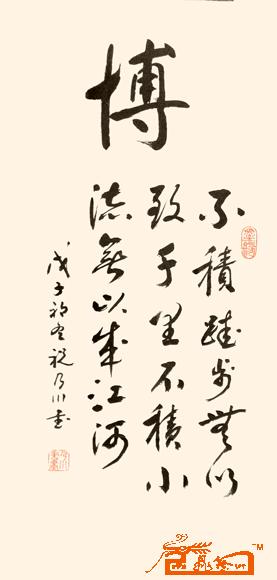 博
不積跬步無以
致千里不積小
流無以成江河
戊子初冬祝乃川書
TM